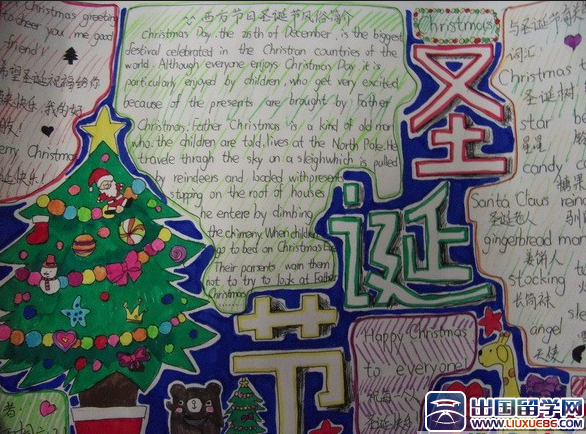 Christmas greeting
to cheer you, me good
friend
我的好
Merry Christmas
西方节日圣诞节风俗简介
Christmas Day, the 25th of December, is the biggest
festival celebrated in the Christian countries of the
world. Although everyone enjoys Christmas Day, it is
particularly enjoyed by children, who get very excited
because of the presents are brought by Father
Christmas. Father Christmas is a kind of old man
who, the children are told, lives at the North Pole. He
travele through the sky on a sleigh which is pulled
by reindeers and loaded with present
stopping on the roof of houses
he entere by climbing
the chimeny. When children
go to bed on Christmas Eve
Their parents warn them
not to try to look at Father
Christmas
Christmas
圣诞节
与圣诞节有
词汇:
Christmas t
圣诞树
star be
星星
candy
糖果
Santa Claus rein
圣诞老人
gingerbread man
姜饼人
stocking
长筒袜
angel
天使
Happy Christmas
to everyone
圣诞快乐
出国留学网
WWW.LIUXUE86.COM